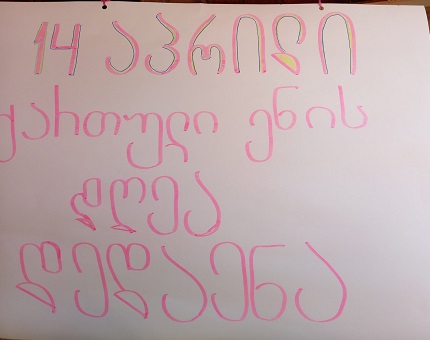 14 აპრილი
ქართული ენის
დღეა
დედაენა